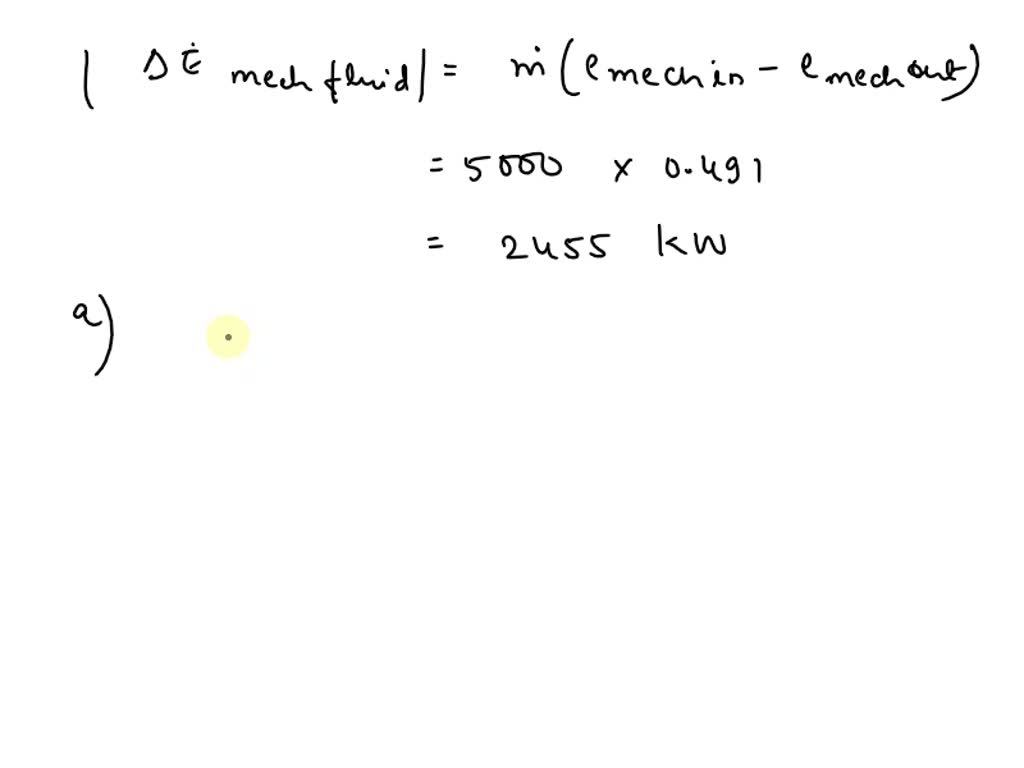 | Δ Ė mech fluid | = ṁ ( e mech in - e mech out )
= 5000 × 0.491
= 2455 kW
a)